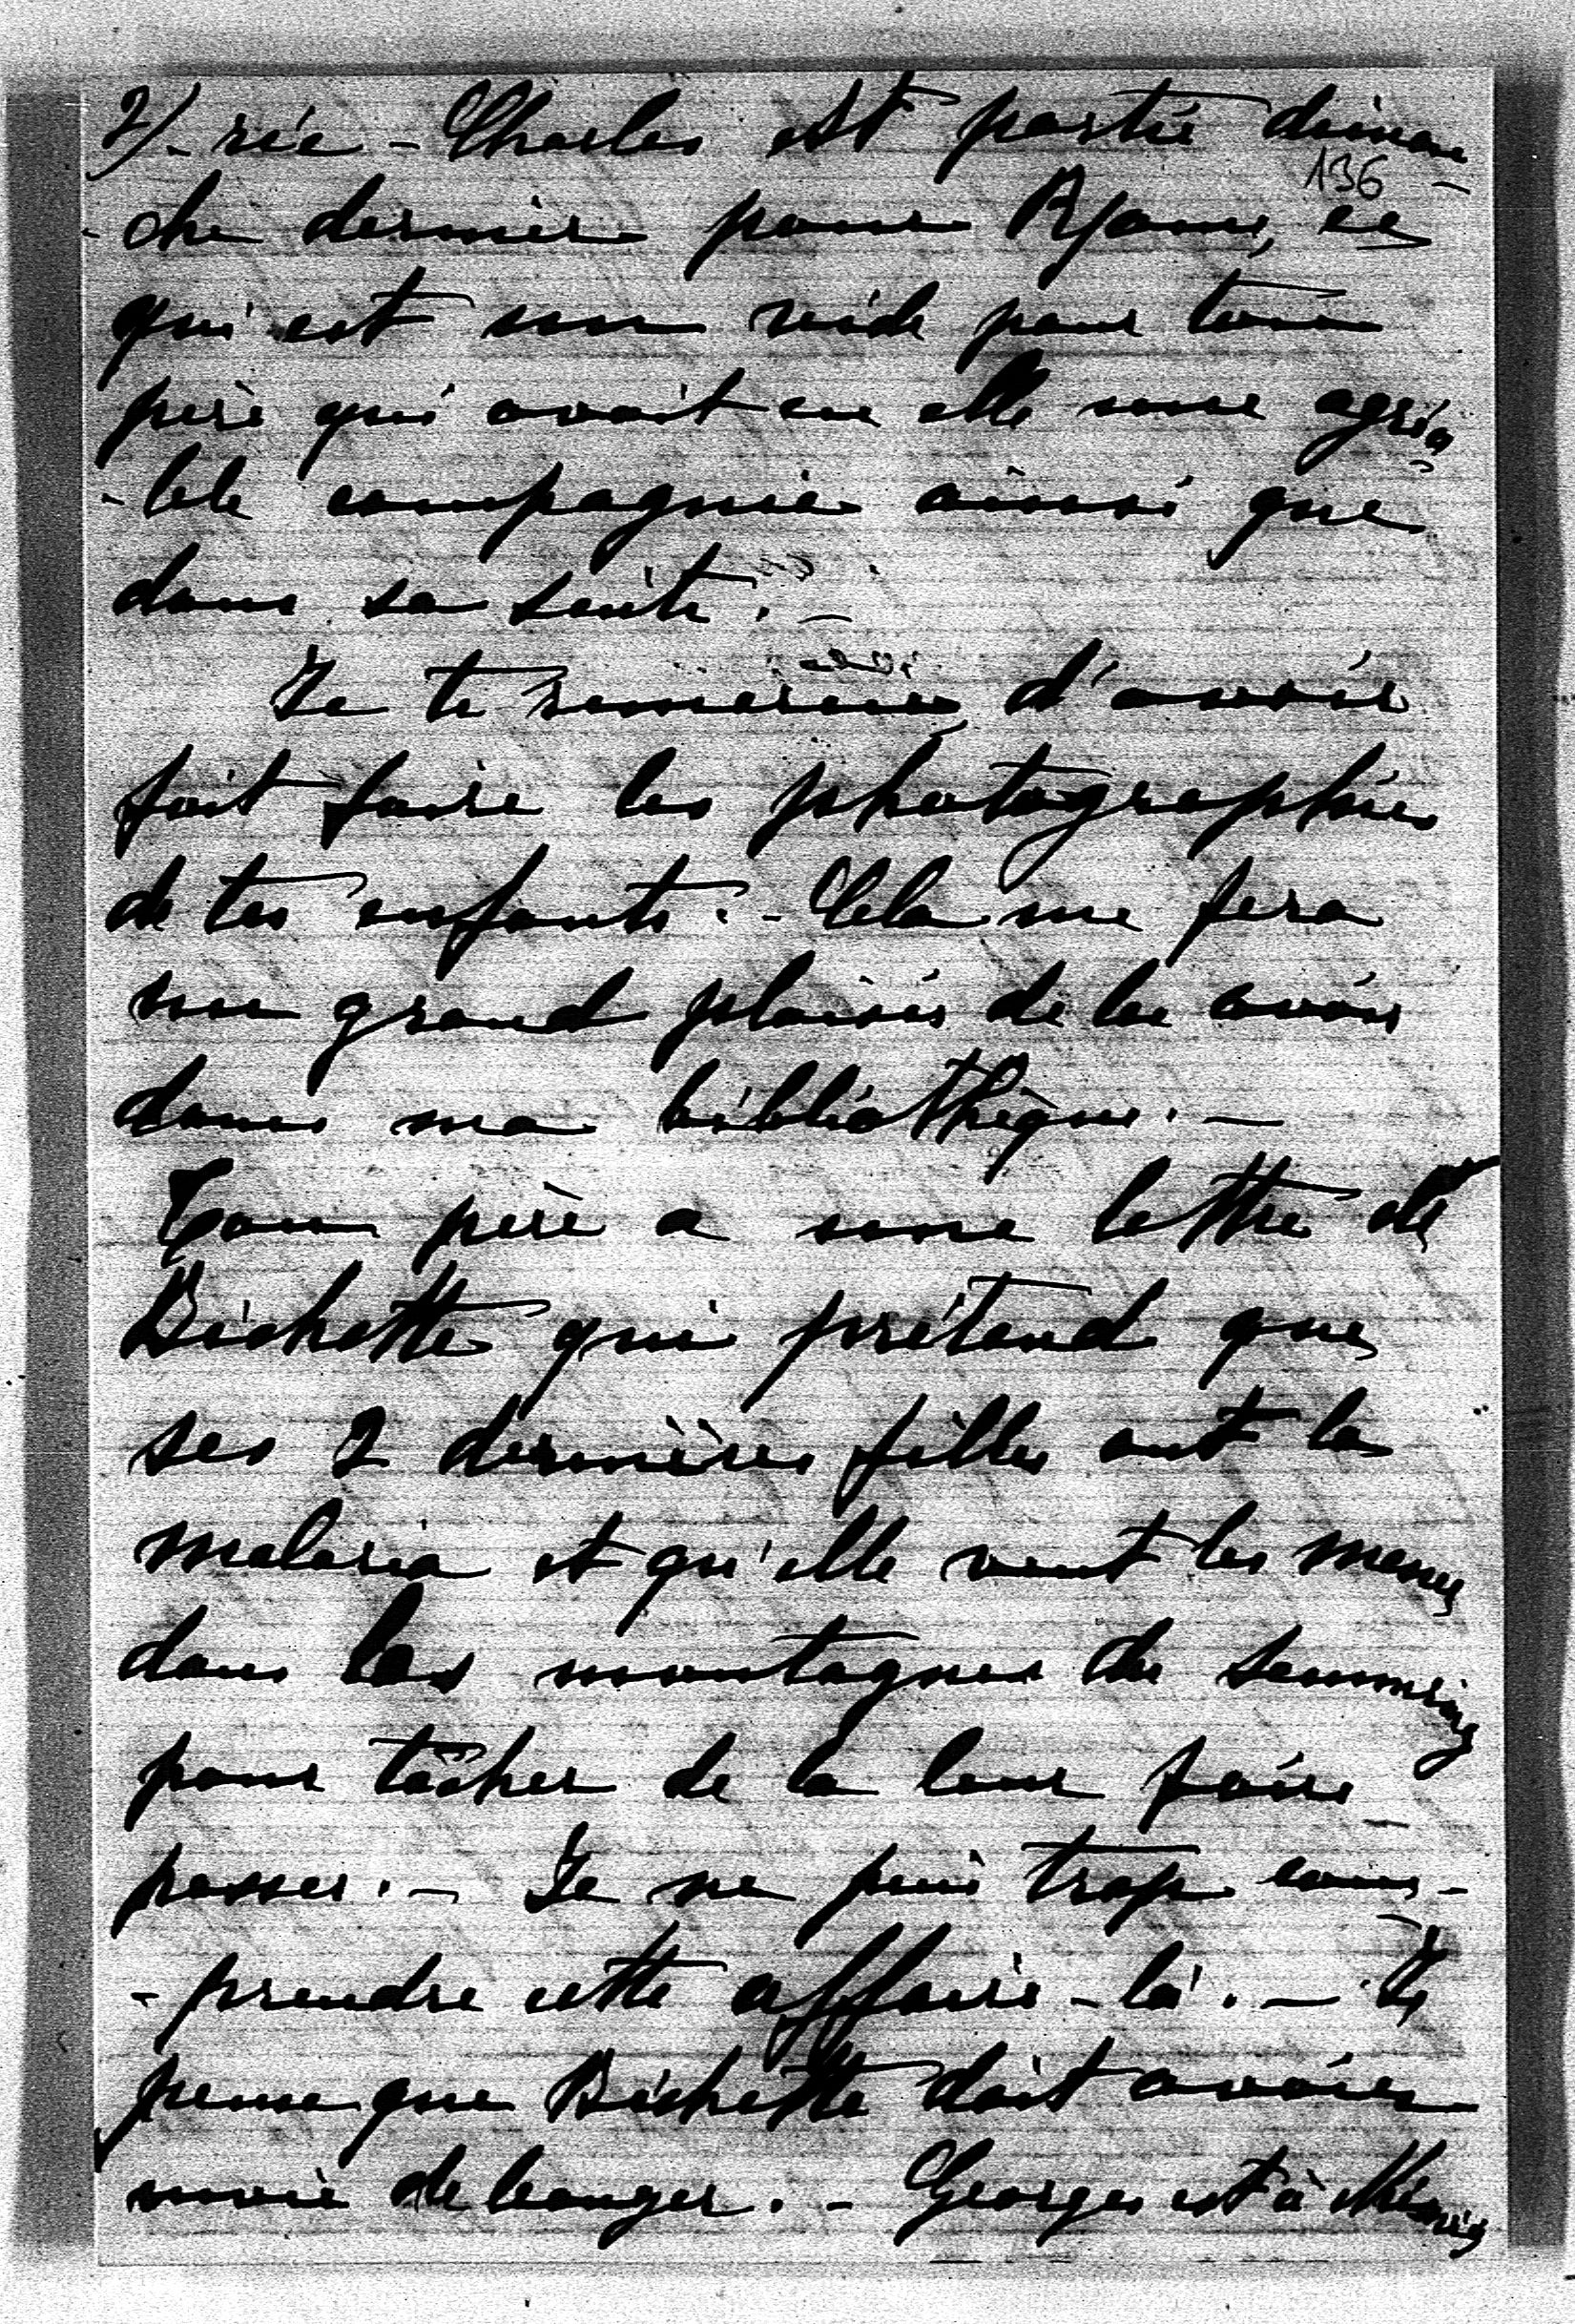 2/-rée - Charles est partie diman-
136
-che dernier pour Ryom, ce
qui est un vide pour ton
père qui avait en elle une agréa
-ble compagnie ainsi que
dans sa suite. -
Je te remercie d'avoir
fait faire les photographies
de tes enfants. - Cela me fera
un grand plaisir de les avoir
dans ma bibliothèque. -
Ton père a une lettre de
Bichette qui prétend que
ses 2 dernières filles ont la
malaria et qu'elle veut les mener
dans les montagnes du Semmring
pour tâcher de la leur faire
passer. - Je ne puis trop com-
-prendre cette affaire-là. - Je
pense que Bichette doit avoir
envie de bouger. - Georges est à